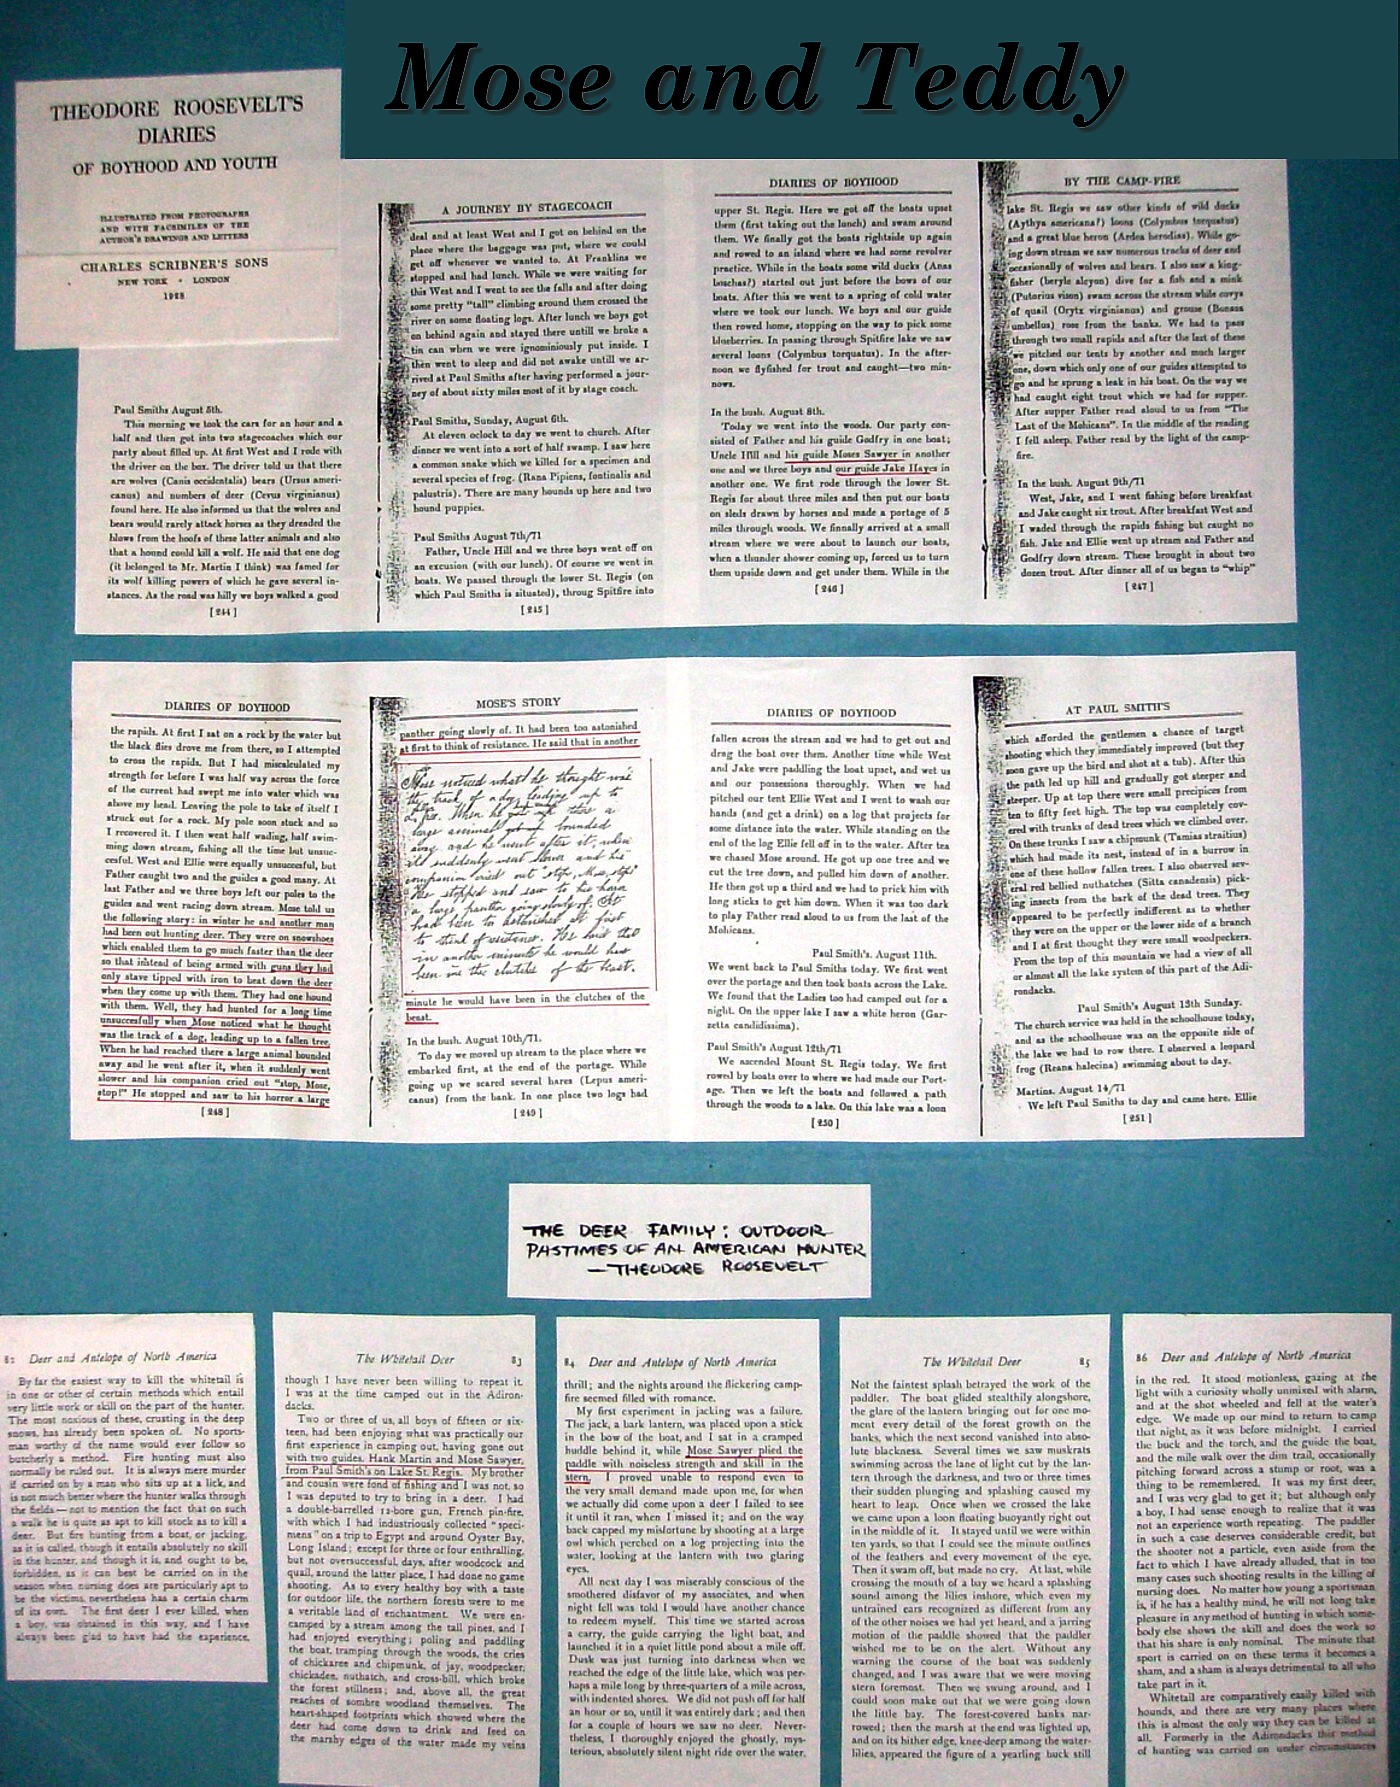 Mose and Teddy
THEODORE ROOSEVELT'S
DIARIES
OF BOYHOOD AND YOUTH
ILLUSTRATED FROM PHOTOGRAPHS
AND WITH FACSIMILES OF THE
AUTHOR'S DRAWINGS AND LETTERS
CHARLES SCRIBNER'S SONS
NEW YORK · LONDON
1928
Paul Smiths August 5th.
This morning we took the cars for an hour and a
half and then got into two stagecoaches which our
party about filled up. At first West and I rode with
the driver on the box. The driver told us that there
are wolves (Canis occidentalis) bears (Ursus ameri-
canus) and numbers of deer (Cevus virginianus)
found here. He also informed us that the wolves and
bears would rarely attack horses as they dreaded the
blows from the hoofs of these latter animals and also
that a hound could kill a wolf. He said that one dog
(it belonged to Mr. Martin I think) was famed for
its wolf killing powers of which he gave several in-
stances. As the road was hilly we boys walked a good
[ 244 ]
A JOURNEY BY STAGECOACH
deal and at least West and I got on behind on the
place where the baggage was put, where we could
get off whenever we wanted to. At Franklins we
stopped and had lunch. While we were waiting for
this West and I went to see the falls and after doing
some pretty "tall" climbing around them crossed the
river on some floating logs. After lunch we boys got
on behind again and stayed there untill we broke a
tin can when we were ignominiously put inside. I
then went to sleep and did not awake untill we ar-
rived at Paul Smiths after having performed a jour-
ney of about sixty miles most of it by stage coach.
Paul Smiths, Sunday, August 6th.
At eleven oclock to day we went to church. After
dinner we went into a sort of half swamp. I saw here
a common snake which we killed for a specimen and
several species of frog. (Rana Pipiens, fontinalis and
palustris). There are many hounds up here and two
hound puppies.
Paul Smiths August 7th/71
Father, Uncle Hill and we three boys went off on
an excusion (with our lunch). Of course we went in
boats. We passed through the lower St. Regis (on
which Paul Smiths is situated), throug Spitfire into
[ 245 ]
DIARIES OF BOYHOOD
upper St. Regis. Here we got off the boats upset
them (first taking out the lunch) and swam around
them. We finally got the boats rightside up again
and rowed to an island where we had some revolver
practice. While in the boats some wild ducks (Anas
boschas?) started out just before the bows of our
boats. After this we went to a spring of cold water
where we took our lunch. We boys and our guide
then rowed home, stopping on the way to pick some
blueberries. In passing through Spitfire lake we saw
several loons (Columbus torquatus). In the after-
noon we flyfished for trout and caught—two min-
nows.
In the bush. August 8th.
Today we went into the woods. Our party con-
sisted of Father and his guide Godfry in one boat;
Uncle Hill and his guide Moses Sawyer in another
one and we three boys and our guide Jake Hayes in
another one. We first rode through the lower St.
Regis for about three miles and then put our boats
on sleds drawn by horses and made a portage of 5
miles through woods. We finnally arrived at a small
stream where we were about to launch our boats,
when a thunder shower coming up, forced us to turn
them upside down and get under them. While in the
[ 246 ]
BY THE CAMP-FIRE
lake St. Regis we saw other kinds of wild ducks
(Aythya americana?) loons (Colymbus torquatus)
and a great blue heron (Ardea herodias). While go-
ing down stream we saw numerous tracks of deer and
occasionally of wolves and bears. I also saw a king-
fisher (beryle alcyon) dive for a fish and a mink
(Putorius vison) swam across the stream while covys
of quail (Oryts virginianus) and grouse (Bonasa
umbellus) rose from the banks. We had to pass
through two small rapids and after the last of these
we pitched our tents by another and much larger
one, down which only one of our guides attempted to
go and he sprung a leak in his boat. On the way we
had caught eight trout which we had for supper.
After supper Father read aloud to us from "The
Last of the Mohicans". In the middle of the reading
I fell asleep. Father read by the light of the camp-
fire.
In the bush. August 9th/71
West, Jake, and I went fishing before breakfast
and Jake caught six trout. After breakfast West and
I waded through the rapids fishing but caught no
fish. Jake and Ellie went up stream and Father and
Godfry down stream. These brought in about two
dozen trout. After dinner all of us began to "whip"
[ 247 ]
DIARIES OF BOYHOOD
the rapids. At first I sat on a rock by the water but
the black flies drove me from there, so I attempted
to cross the rapids. But I had miscalculated my
strength for before I was half way across the force
of the current had swept me into water which was
above my head. Leaving the pole to take of itself I
struck out for a rock. My pole soon stuck and so
I recovered it. I then went half wading, half swim-
ming down stream, fishing all the time but unsuc-
cesful. West and Ellie were equally unsuccesful, but
Father caught two and the guides a good many. At
last Father and we three boys left our poles to the
guides and went racing down stream. Mose told us
the following story: in winter he and another man
had been out hunting deer. They were on snowshoes
which enabled them to go much faster than the deer
so that instead of being armed with guns they had
only stave tipped with iron to beat down the deer
when they come up with them. They had one hound
with them. Well, they had hunted for a long time
unsuccesfully when Mose noticed what he thought
was the track of a dog, leading up to a fallen tree.
When he had reached there a large animal bounded
away and he went after it, when it suddenly went
slower and his companion cried out "stop, Mose,
stop!" He stopped and saw to his horror a large
[ 248 ]
MOSE'S STORY
panther going slowly of. It had been too astonished
at first to think of resistance. He said that in another
Mose noticed what he thought was
the track of a dog leading up to
a fire. When he got there a
large animal bounded
away and he went after it, when
it suddenly went slower and his
companion cried out "stop, Mose, stop"
He stopped and saw to his horror
a large panther going slowly of. It
had been to astonished at first
to think of resistance. He said that
in another minute he would have
been in the clutches of the beast.
minute he would have been in the clutches of the
beast.
In the bush. August 10th/71.
To day we moved up stream to the place where we
embarked first, at the end of the portage. While
going up we scared several hares (Lepus ameri-
canus) from the bank. In one place two logs had
[ 249 ]
DIARIES OF BOYHOOD
fallen across the stream and we had to get out and
drag the boat over them. Another time while West
and Jake were paddling the boat upset, and wet us
and our possessions thoroughly. When we had
pitched our tent Ellie West and I went to wash our
hands (and get a drink) on a log that projects for
some distance into the water. While standing on the
end of the log Ellie fell off in to the water. After tea
we chased Mose around. He got up one tree and we
cut the tree down, and pulled him down of another.
He then got up a third and we had to prick him with
long sticks to get him down. When it was too dark
to play Father read aloud to us from the last of the
Mohicans.
Paul Smith's. August 11th.
We went back to Paul Smiths today. We first went
over the portage and then took boats across the Lake.
We found that the Ladies too had camped out for a
night. On the upper lake I saw a white heron (Gar-
zetta candidissima).
Paul Smith's August 12th/71
We ascended Mount St. Regis today. We first
rowed by boats over to where we had made our Port-
age. Then we left the boats and followed a path
through the woods to a lake. On this lake was a loon
[ 250 ]
AT PAUL SMITH'S
which afforded the gentlemen a chance of target
shooting which they immediately improved (but they
soon gave up the bird and shot at a tub). After this
the path led up hill and gradually got steeper and
steeper. Up at top there were small precipices from
ten to fifty feet high. The top was completely cov-
ered with trunks of dead trees which we climbed over.
On these trunks I saw a chipmunk (Tamias straitius)
which had made its nest, instead of in a burrow in
one of these hollow fallen trees. I also observed sev-
eral red bellied nuthatches (Sitta canadensis) pick-
ing insects from the bark of the dead trees. They
appeared to be perfectly indifferent as to whether
they were on the upper or the lower side of a branch
and I at first thought they were small woodpeckers.
From the top of this mountain we had a view of all
or almost all the lake system of this part of the Adi-
rondacks.
Paul Smith's August 13th Sunday.
The church service was held in the schoolhouse today,
and as the schoolhouse was on the opposite side of
the lake we had to row there. I observed a leopard
frog (Reana halecina) swimming about to day.
Martins. August 14/71
We left Paul Smiths to day and came here. Ellie
[ 251 ]
THE DEER FAMILY: OUTDOOR
PASTIMES OF AN AMERICAN HUNTER
—THEODORE ROOSEVELT
82 Deer and Antelope of North America
By far the easiest way to kill the whitetail is
in one or other of certain methods which entail
very little work or skill on the part of the hunter.
The most noxious of these, crusting in the deep
snows, has already been spoken of. No sports-
man worthy of the name would ever follow so
butcherly a method. Fire hunting must also
normally be ruled out. It is always mere murder
if carried on by a man who sits up at a lick, and
is not much better where the hunter walks through
the fields—not to mention the fact that on such
a walk he is quite as apt to kill stock as to kill a
deer. But fire hunting from a boat, or jacking,
as it is called, though it entails absolutely no skill
in the hunter, and though it is, and ought to be,
forbidden, as it can best be carried on in the
season when nursing does are particularly apt to
be the victims, nevertheless has a certain charm
of its own. The first deer I ever killed, when
a boy, was obtained in this way, and I have
always been glad to have had the experience,
The Whitetail Deer 83
though I have never been willing to repeat it.
I was at the time camped out in the Adiron-
dacks.
Two or three of us, all boys of fifteen or six-
teen, had been enjoying what was practically our
first experience in camping out, having gone out
with two guides, Hank Martin and Mose Sawyer,
from Paul Smith's on Lake St. Regis. My brother
and cousin were fond of fishing and I was not, so
I was deputed to try to bring in a deer. I had
a double-barrelled 12-bore gun, French pin-fire,
with which I had industriously collected "speci-
mens" on a trip to Egypt and around Oyster Bay,
Long Island; except for three or four enthralling,
but not oversuccessful, days, after woodcock and
quail, around the latter place, I had done no game
shooting. As to every healthy boy with a taste
for outdoor life, the northern forests were to me
a veritable land of enchantment. We were en-
camped by a stream among the tall pines, and I
had enjoyed everything; poling and paddling
the boat, tramping through the woods, the cries
of chickaree and chipmunk, of jay, woodpecker,
chickadee, nuthatch, and cross-bill, which broke
the forest stillness; and, above all, the great
reaches of sombre woodland themselves. The
heart-shaped footprints which showed where the
deer had come down to drink and feed on
the marshy edges of the water made my veins
84 Deer and Antelope of North America
thrill; and the nights around the flickering camp-
fire seemed filled with romance.
My first experiment in jacking was a failure.
The jack, a bark lantern, was placed upon a stick
in the bow of the boat, and I sat in a cramped
huddle behind it, while Mose Sawyer plied the
paddle with noiseless strength and skill in the
stern. I proved unable to respond even to
the very small demand made upon me, for when
we actually did come upon a deer I failed to see
it until it ran, when I missed it; and on the way
back capped my misfortune by shooting at a large
owl which perched on a log projecting into the
water, looking at the lantern with two glaring
eyes.
All next day I was miserably conscious of the
smothered disfavor of my associates, and when
night fell was told I would have another chance
to redeem myself. This time we started across
a carry, the guide carrying the light boat, and
launched it in a quiet little pond about a mile off.
Dusk was just turning into darkness when we
reached the edge of the little lake, which was per-
haps a mile long by three-quarters of a mile across,
with indented shores. We did not push off for half
an hour or so, until it was entirely dark; and then
for a couple of hours we saw no deer. Never-
theless, I thoroughly enjoyed the ghostly, mys-
terious, absolutely silent night ride over the water.
The Whitetail Deer 85
Not the faintest splash betrayed the work of the
paddler. The boat glided stealthily alongshore,
the glare of the lantern bringing out for one mo-
ment every detail of the forest growth on the
banks, which the next second vanished into abso-
lute blackness. Several times we saw muskrats
swimming across the lane of light cut by the lan-
tern through the darkness, and two or three times
their sudden plunging and splashing caused my
heart to leap. Once when we crossed the lake
we came upon a loon floating buoyantly right out
in the middle of it. It stayed until we were within
ten yards, so that I could see the minute outlines
of the feathers and every movement of the eye.
Then it swam off, but made no cry. At last, while
crossing the mouth of a bay we heard a splashing
sound among the lilies inshore, which even my
untrained ears recognized as different from any
of the other noises we had yet heard, and a jarring
motion of the paddle showed that the paddler
wished me to be on the alert. Without any
warning the course of the boat was suddenly
changed, and I was aware that we were moving
stern foremost. Then we swung around, and I
could soon make out that we were going down
the little bay. The forest-covered banks nar-
rowed; then the marsh at the end was lighted up,
and on its hither edge, knee-deep among the water-
lilies, appeared the figure of a yearling buck still
86 Deer and Antelope of North America
in the red. It stood motionless, gazing at the
light with a curiosity wholly unmixed with alarm,
and at the shot wheeled and fell at the water's
edge. We made up our mind to return to camp
that night, as it was before midnight. I carried
the buck and the torch, and the guide the boat,
and the mile walk over the dim trail, occasionally
pitching forward across a stump or root, was a
thing to be remembered. It was my first deer,
and I was very glad to get it; but although only
a boy, I had sense enough to realize that it was
not an experience worth repeating. The paddler
in such a case deserves considerable credit, but
the shooter not a particle, even aside from the
fact to which I have already alluded, that in too
many cases such shooting results in the killing of
nursing does. No matter how young a sportsman
is, if he has a healthy mind, he will not long take
pleasure in any method of hunting in which some-
body else shows the skill and does the work so
that his share is only nominal. The minute that
sport is carried on on these terms it becomes a
sham, and a sham is always detrimental to all who
take part in it.
Whitetail are comparatively easily killed with
hounds, and there are very many places where
this is almost the only way they can be killed at
all. Formerly in the Adirondacks this method
of hunting was carried on under circumstances